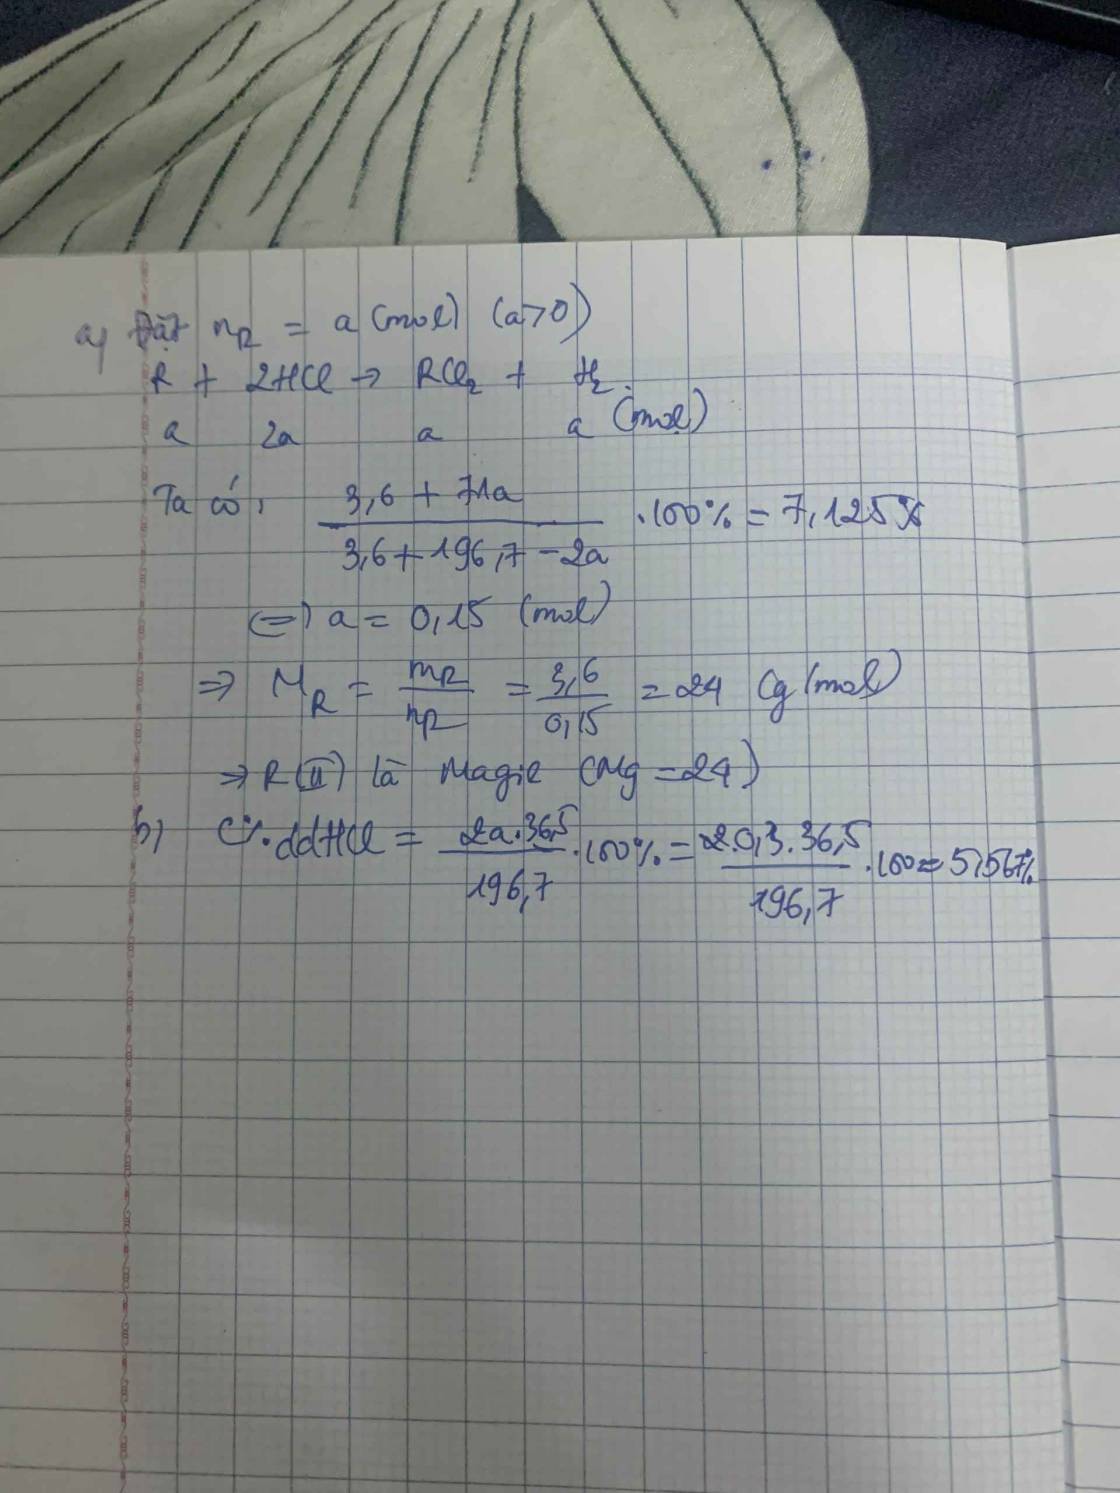 a) Đặt nR = a (mol) (a>0)
R + 2HCl → RCl2 + H2.
a 2a a a (mol)
Ta có: (3,6 + 71a) / (3,6 + 196,7 - 2a) .100% = 7,125%
(=) a = 0,15 (mol)
=> MR = mR / nR = 3,6 / 0,15 = 24 (g/mol)
=> R(II) là Magie (Mg = 24)
b) C%.ddHCl = 2a.36,5 / 196,7 .100% = 2.0,3.36,5 / 196,7 .100 = 5,567%